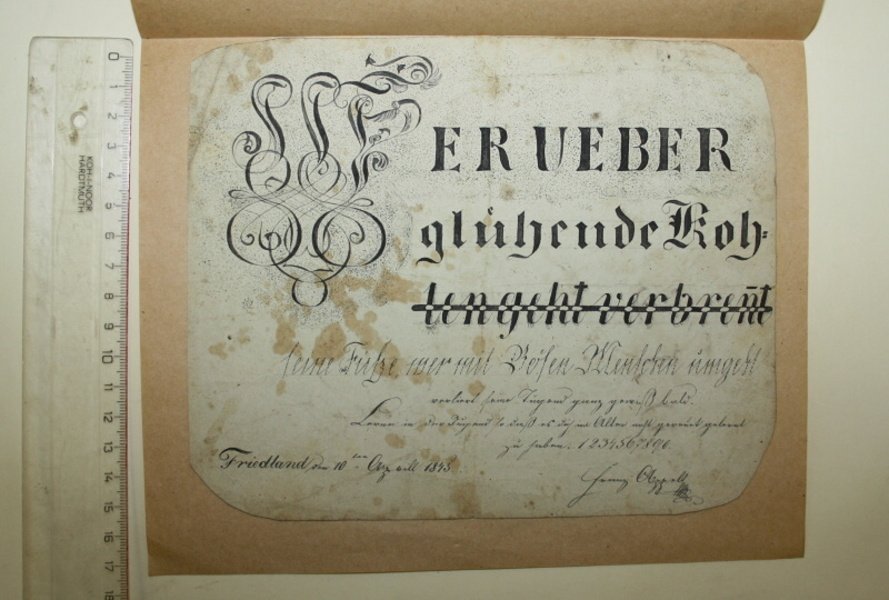 0
1
2
3
4
5
6
7
8
9
10
11
12
13
14
15
16
17
18
KOH-I-NOOR
HARDTMUTH
WER UEBER
glühende Koh=
len geht verbreñt
seine Füße, wer mit Bösen Menschen umgeht
verliert seine Tugend ganz gewiß bald.
Lerne in der Jugend so daß es dich im Alter nicht gereuet gelernt
zu haben. 1234567890.
Friedland, den 10ten Aprill 1843.
Franz Appelt